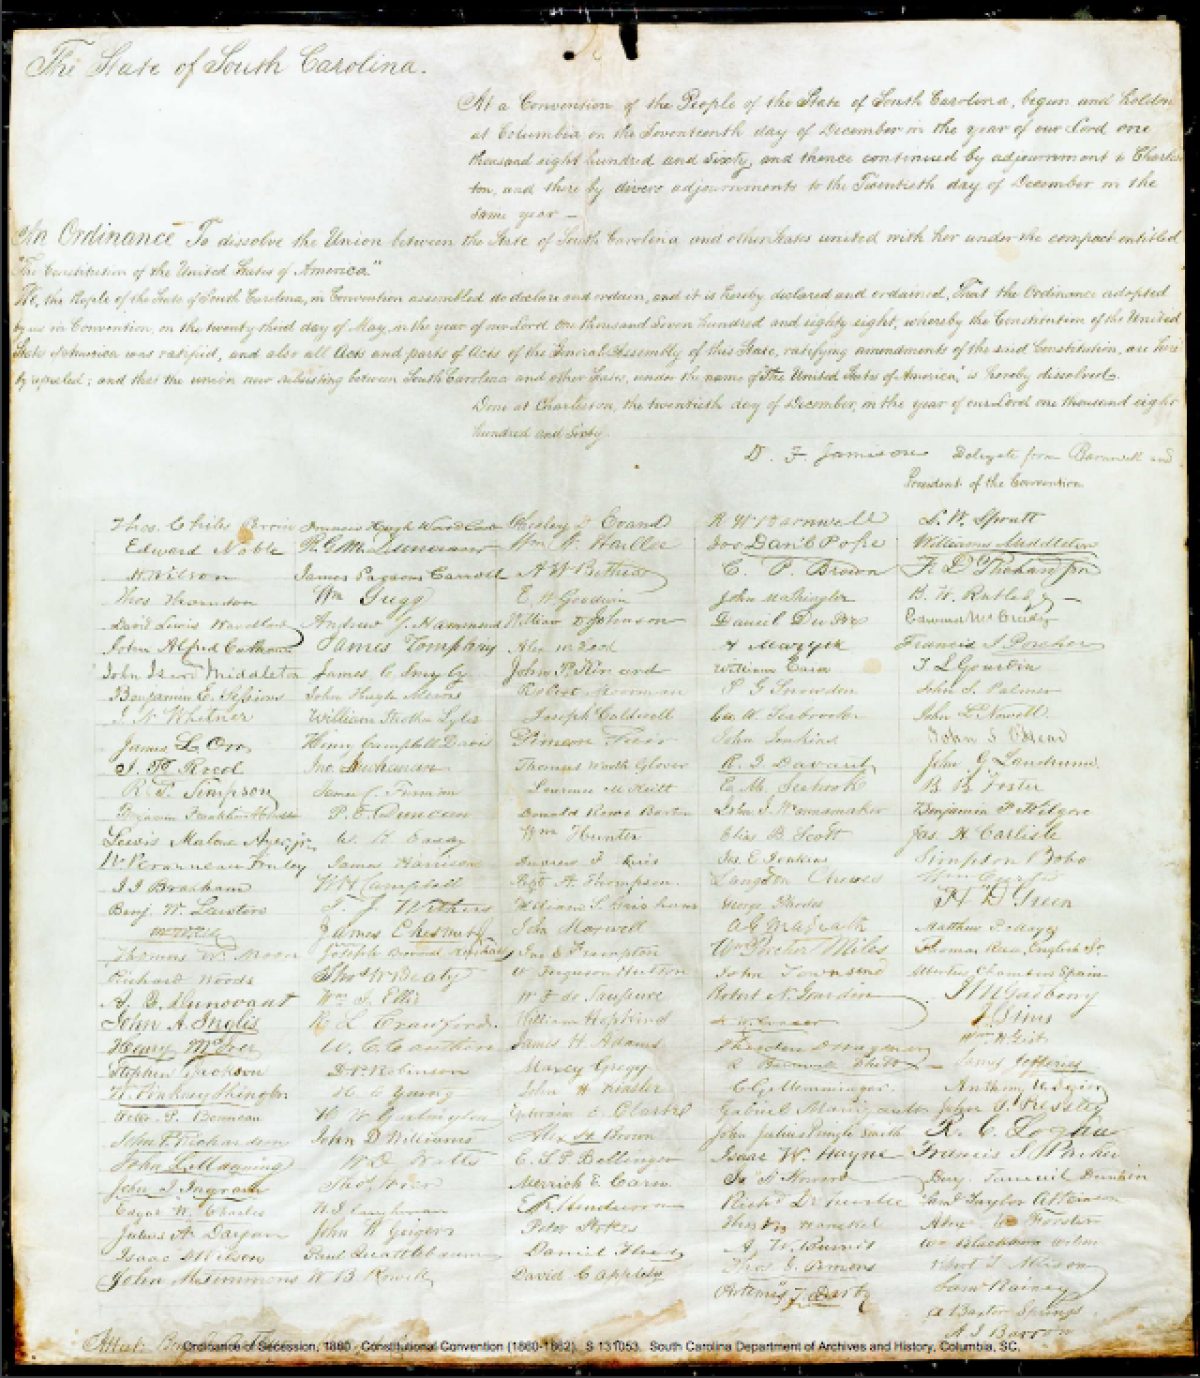 The State of South Carolina.
At a Convention of the People of the State of South Carolina, begun and holden
at Columbia on the Seventeenth day of December in the year of our Lord one
thousand eight hundred and sixty, and thence continued by adjournment to Charles
ton, and there by divers adjournments to the Twentieth day of December in the
same year —
An Ordinance To dissolve the Union between the State of South Carolina and other States united with her under the compact entitled
"The Constitution of the United States of America."
We, the People of the State of South Carolina, in Convention assembled do declare and ordain, and it is hereby declared and ordained, That the Ordinance adopted
by us in Convention, on the twenty third day of May, in the year of our Lord One thousand Seven hundred and eighty eight, whereby the Constitution of the United
States of America was ratified, and also all Acts and parts of Acts of the General Assembly of this State, ratifying amendments of the said Constitution, are here
by repealed; and that the union now subsisting between South Carolina and other States, under the name of "The United States of America," is hereby dissolved.
Done at Charleston, the twentieth day of December, in the year of our Lord one thousand eight
hundred and Sixty.
D. F. Jamison Delegate from Barnwell and
President of the Convention
Thos. Chiles Perrin
Edward Noble
J. H. Wilson
Thos Thomson
David Lewis Wardlaw
John Alfred Calhoun
John Izard Middleton
Benjamin E. Sessions
J. N. Whitner
James L. Orr
J. P. Reed
R. F. Simpson
Benjamin Franklin
Lewis Malone Ayer, jr.
W. Peronneau Finley
J. J. Brabham
Benj. W. Lawton
Thomas W. Moore
Richard Woods
A. Q. Dunovant
John A. Inglis
Henry McIver
Stephen Jackson
W. Pinkney Shingler
Peter P. Bonneau
John P. Richardson
John L. Manning
John J. Ingram
Edgar W. Charles
Julius A. Dargan
Isaac D Wilson
John M Timmons
Francis Hugh Wardlaw
R. G. M. Dunovant
James Parsons Carroll
Wm Gregg
Andrew J. Hammond
James Tompkins
James C. Smyly
John Hugh Means
William Strother Lyles
Henry Campbell Davis
Jno. Buchanan
James C. Furman
P. E. Duncan
W. K. Easley
James Harrison
W H Campbell
T. J. Withers
James Chesnut, jr
Joseph Brevard Kershaw
Thos W Beaty
Wm. J. Ellis
R. L. Crawford
W. C. Cauthen
D. P. Robinson
H. C. Young
H. W. Garlington
John D Williams
W. D. Watts
Thos. Wier
H. I. Caughman
John C Geiger
Paul Quattlebaum
W. B. Rowell
Chesley D Evans
Wm W. Harllee
A. W. Bethea
E. W. Goodwin
William D Johnson
Alex McLeod
John P. Kinard
Robert Moorman
Joseph Caldwell
Simeon Fair
Thomas Worth Glover
Lawrence M Keitt
Donald Rowe Barton
Wm Hunter
Andrew F. Lewis
Robt A. Thompson
William S. Grisham
John Maxwell
Jno E Frampton
W Ferguson Hutson
W F de Saussure
William Hopkins
James H Adams
Maxcy Gregg
John H. Kinsler
Ephraim C. Clarke
Alex H Brown
E. S. P. Bellinger
Merrick E. Carn
E. R. Henderson
Peter Stokes
Daniel Flud
David C Appleby
R W Barnwell
Jos. Dan'l Pope
C. P. Brown
John M Shingler
Daniel DuPre
A Mazyck
William Cain
P G Snowden
Geo. W Seabrook
John Jenkins
R. J. Davant
E. M. Seabrook
John J. Wannamaker
Elias B. Scott
Jos. E Jenkins
Langdon Cheves
George Rhodes
A G Magrath
Wm Porcher Miles
John Townsend
Robert N. Gourdin
H. W. Conner
Theodore D Wagner
R. Barnwell Rhett
C. G. Memminger
Gabriel Manigault
John Julius Pringle Smith
Isaac W. Hayne
Jn. H. Honour
Rich'd De Treville
Thos M. Hanckel
A. W. Burnet
Thos. Y. Simons
Artemas T. Darby
L. W. Spratt
Williams Middleton
F. D. Richardson
B. H. Rutledge
Edward McCrady
Francis J. Porcher
T. L. Gourdin
John S. Palmer
John L Nowell
John S. O'Hear
John G. Landrum
B. B. Foster
Benjamin F. Kilgore
Jas. H. Carlisle
Simpson Bobo
Wm Curtis
H. D. Green
Matthew P. Mayes
Thomas Reese English Sr.
Albertus Chambers Spain
J. M. Gadberry
J. S. Sims
Wm. H. Gist
James Jefferies
Anthony W. Dozier
John G. Pressley
R. C. Logan
Francis S Parker
Benj. Faneuil Dunkin
Sam'l Taylor Atkinson
Alex M Forster
Wm Blackburn Wilson
Robert T. Allison
Sam'l Rainey
A Baxter Springs
A. I. Barron
Attest: Benj.
Ordinance of Secession, 1860. Constitutional Convention (1860-1862). S 131053. South Carolina Department of Archives and History, Columbia, SC.